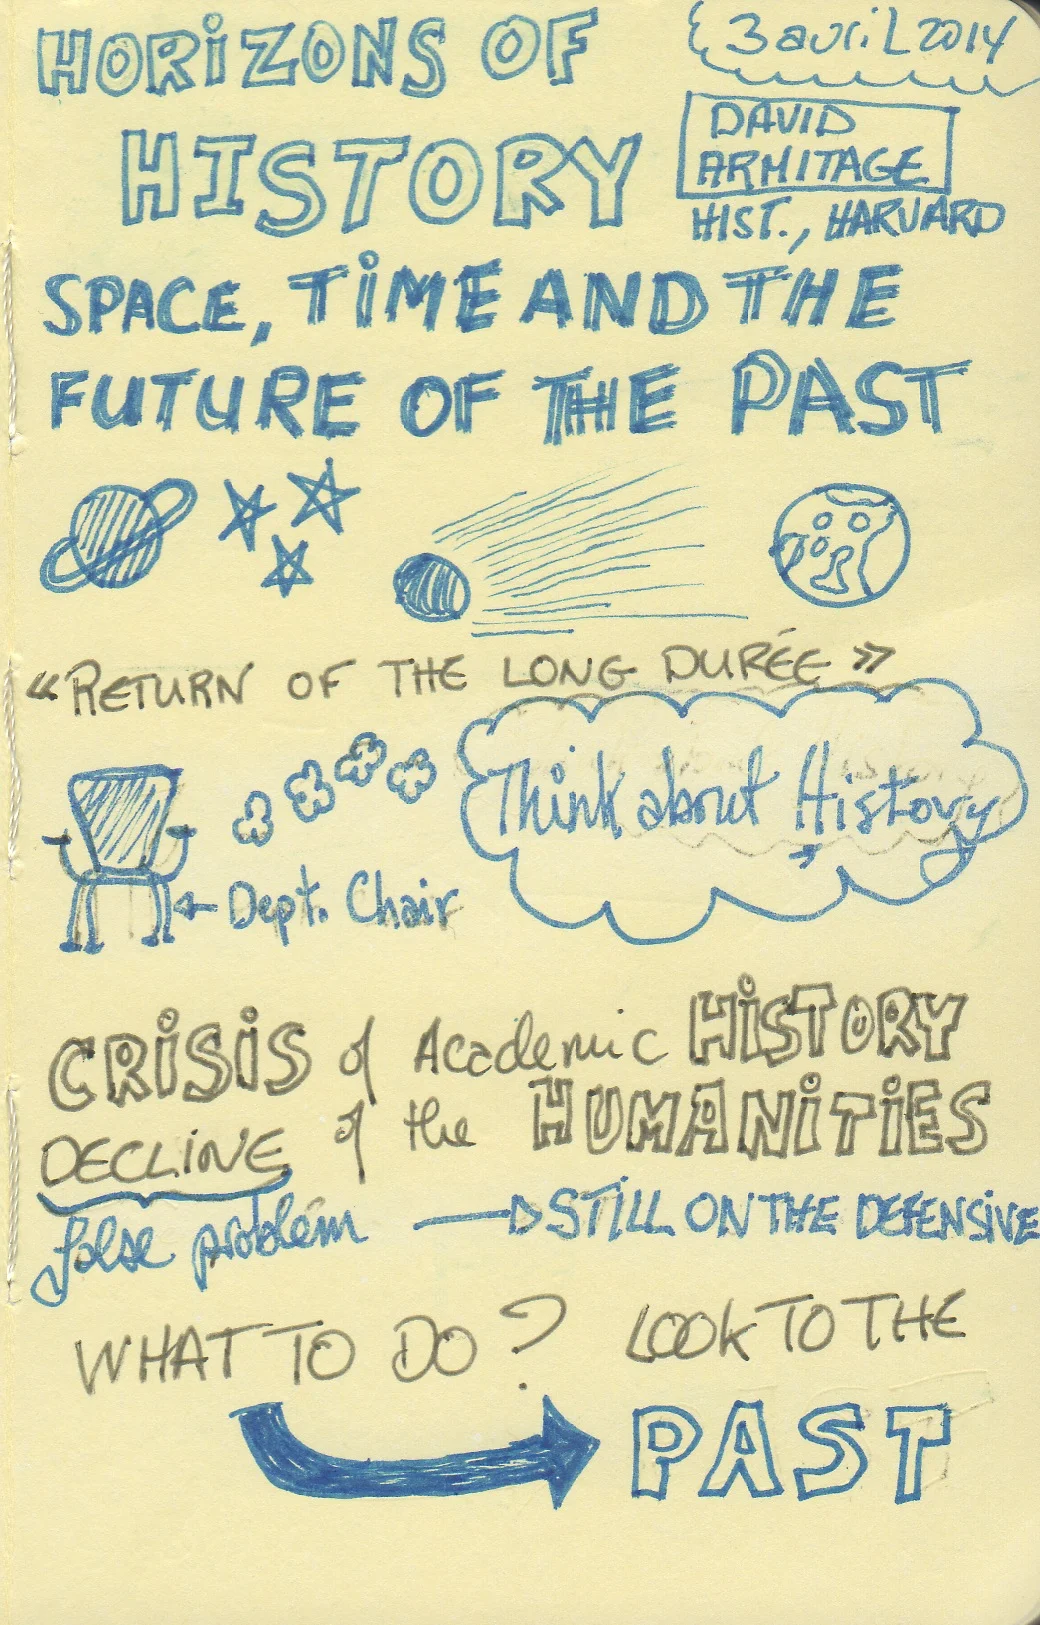 HORiZONS OF
HISTORY
3 avril 2014
DAVID
ARMITAGE
HIST., HARVARD
SPACE, TiME AND THE
FUTURE OF THE PAST
«RETURN OF THE LONG DURÉE»
Think about History
Dept. Chair
CRiSiS of Academic HiSTORY
DECLiNE of the HUMANiTiES
false problem → STiLL ON THE DEFENSiVE
WHAT TO DO? LOOK TO THE
PAST